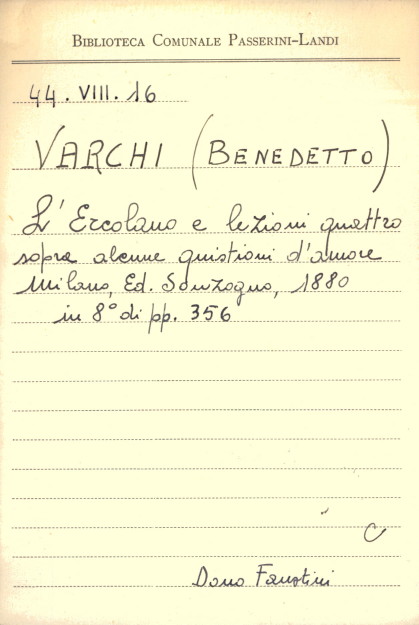 BIBLIOTECA COMUNALE PASSERINI-LANDI
44. VIII. 16
VARCHI (BENEDETTO)
L'Ercolano e lezioni quattro
sopra alcune quistioni d'amore
Milano, Ed. Sonzogno, 1880
in 8° di pp. 356
C
Dono Faustini